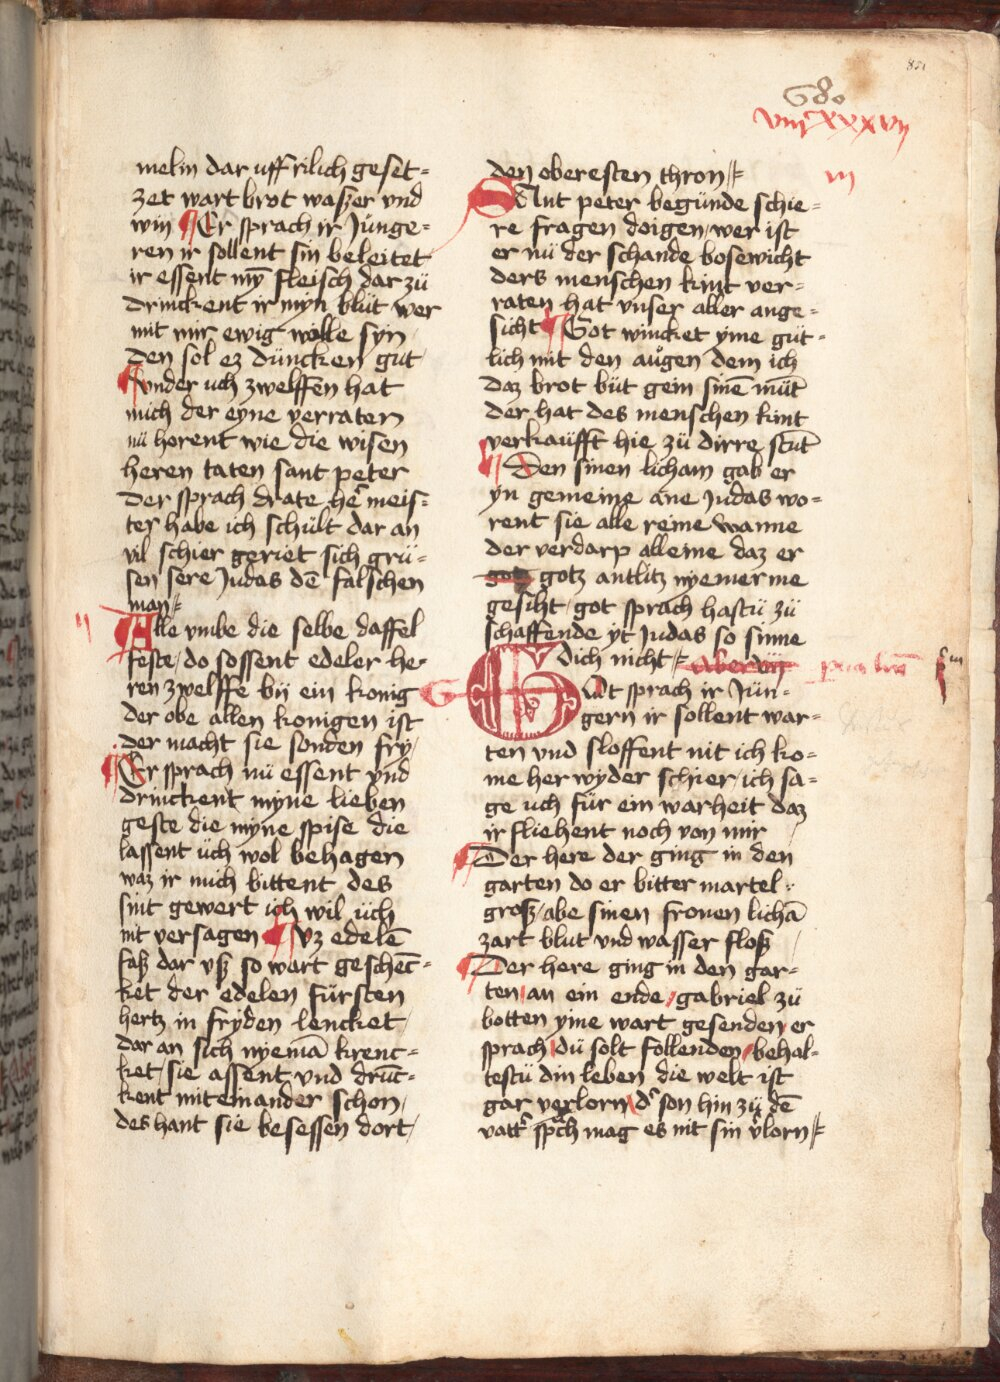 821
680
viijᶜ xxxvij
melin dar uff frilich geset-
zet wart brot waszer vnd
win Er sprach ir Junge-
ren ir sollent sin beleitet
ir essent mȳ fleisch dar zü
drinckent ir myn blüt wer
mit mir ewig wolle syn
den sol ez düncken gut
vnder uch zwelffen hat
mich der eyne verraten
nü horent wie die wisen
heren taten sant peter
der sprach drate he᷑ meis-
ter habe ich schült dar an
vil schier geriet sich grü-
sen sere Judas dē falschen
man
Alle vmbe die selbe daffel
feste/ do sossent edeler he-
ren zwelffe bÿ ein konig
der obe allen konigen ist
der macht sie sonden fry/
Er sprach nü essent vnd
drinckent myne lieben
geste die myne spise die
lassent üch wol behagen
waz ir mich bittent des
sint gewert ich wil üch
nit versagen Vz edelē
fasz dar vsz so wart geschēc-
ket der edelen fürsten
hertz in fryden lencket/
dar an sich nyemā krenc-
ket/ sie assent vnd drūc-
kent miteinander schon/
des hant sie besessen dort/
den oberesten thron
iij
Sant peter begünde schie-
re fragen doigen/ wer ist
er nü der schande bosewicht
ders menschen kint ver-
raten hat vnser aller ange-
sicht Got wincket yme güt-
lich mit den aügen dem ich
daz brot büt gein sinē mūt
der hat des menschen kint
verkaüfft hie zü dirre stūt
Den sinen licham gab er
yn gemeine ane Judas wo-
rent sie alle reine wanne
der verdarp alleine daz er
gotz gotz antlitz nyemer me
gesiht/ got sprach hastü zü
schaffende yt Judas so sinne
dich nicht aber vij
Got sprach ir Jün-
gern ir sollent war-
ten vnd sloffent nit ich ko-
me her wyder schier/ ich sa-
ge uch für ein warheit daz
ir fliehent noch von mir
Der here der ging in den
garten do er bitter martel
grosz/ abe sinen fronen lichā
zart blut vnd wasser flosz
Der here ging in den gar-
ten/ an ein ende/ gabriel zü
botten yme wart gesenden/ er
sprach/ dü solt follenden/ behal-
testü din leben die welt ist
gar verlorn/ d᷑ son hin zü dē
vatt᷑ sprach mag es nit sin v᷑lorn